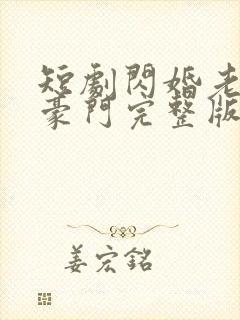 短劇閃婚老
豪門完整版
姜宏銘